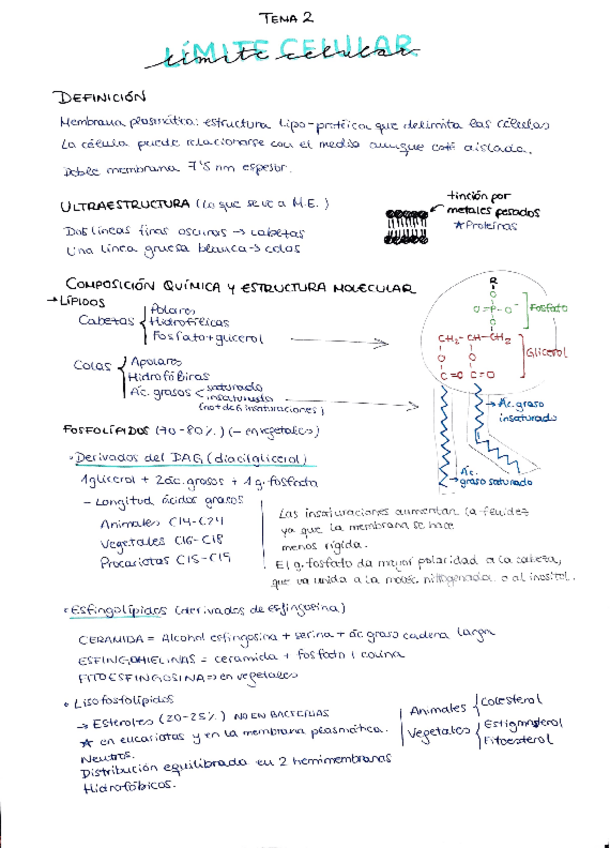 TEMA 2
LÍMITE CELULAR
límite celular
DEFINICIÓN
Membrana plasmática: estructura lipo-protéica que delimita las células
La célula puede relacionarse con el medio aunque esté aislada.
Doble membrana 7'5 nm espesor.
ULTRAESTRUCTURA (Lo que se ve a M.E.)
Dos líneas finas oscuras → cabezas
Una línea gruesa blanca → colas
tinción por
metales pesados
★ Proteínas
COMPOSICIÓN QUÍMICA Y ESTRUCTURA MOLECULAR
→ LÍPIDOS
Cabezas
Polares
Hidrofílicas
Fosfato + glicerol
Colas
Apolares
Hidrofóbicas
Ác. grasos
saturado
insaturado
(not de 6 insaturaciones)
R
O=P-O⁻
O
Fosfato
CH₂-CH-CH₂
O O
C=O C=O
Glicerol
Ác. graso
insaturado
Ác.
graso saturado
FOSFOLÍPIDOS (70-80%) (- en vegetales)
• Derivados del DAG (diacilglicerol)
1 glicerol + 2 ác. grasos + 1 g. fosfato
- Longitud ácidos grasos
Animales C14-C24
Vegetales C16-C18
Procariotas C15-C19
Las insaturaciones aumentan la fluidez
ya que la membrana se hace
menos rígida.
El g. fosfato da mayor polaridad a la cabeza,
que va unida a la moléc. nitrogenada o al inositol.
• Esfingolípidos (derivados de esfingosina)
CERAMIDA = Alcohol esfingosina + serina + ác graso cadena larga
ESFINGOMIELINAS = ceramida + fosfato + colina
FITOESFINGOSINA => en vegetales
• Lisofosfolípidos
→ Esteroles (20-25%) NO EN BACTERIAS
★ en eucariotas y en la membrana plasmática.
Neutros.
Distribución equilibrada en 2 hemimembranas
Hidrofóbicos.
Animales
Colesterol
Vegetales
Estigmasterol
Fitoesterol